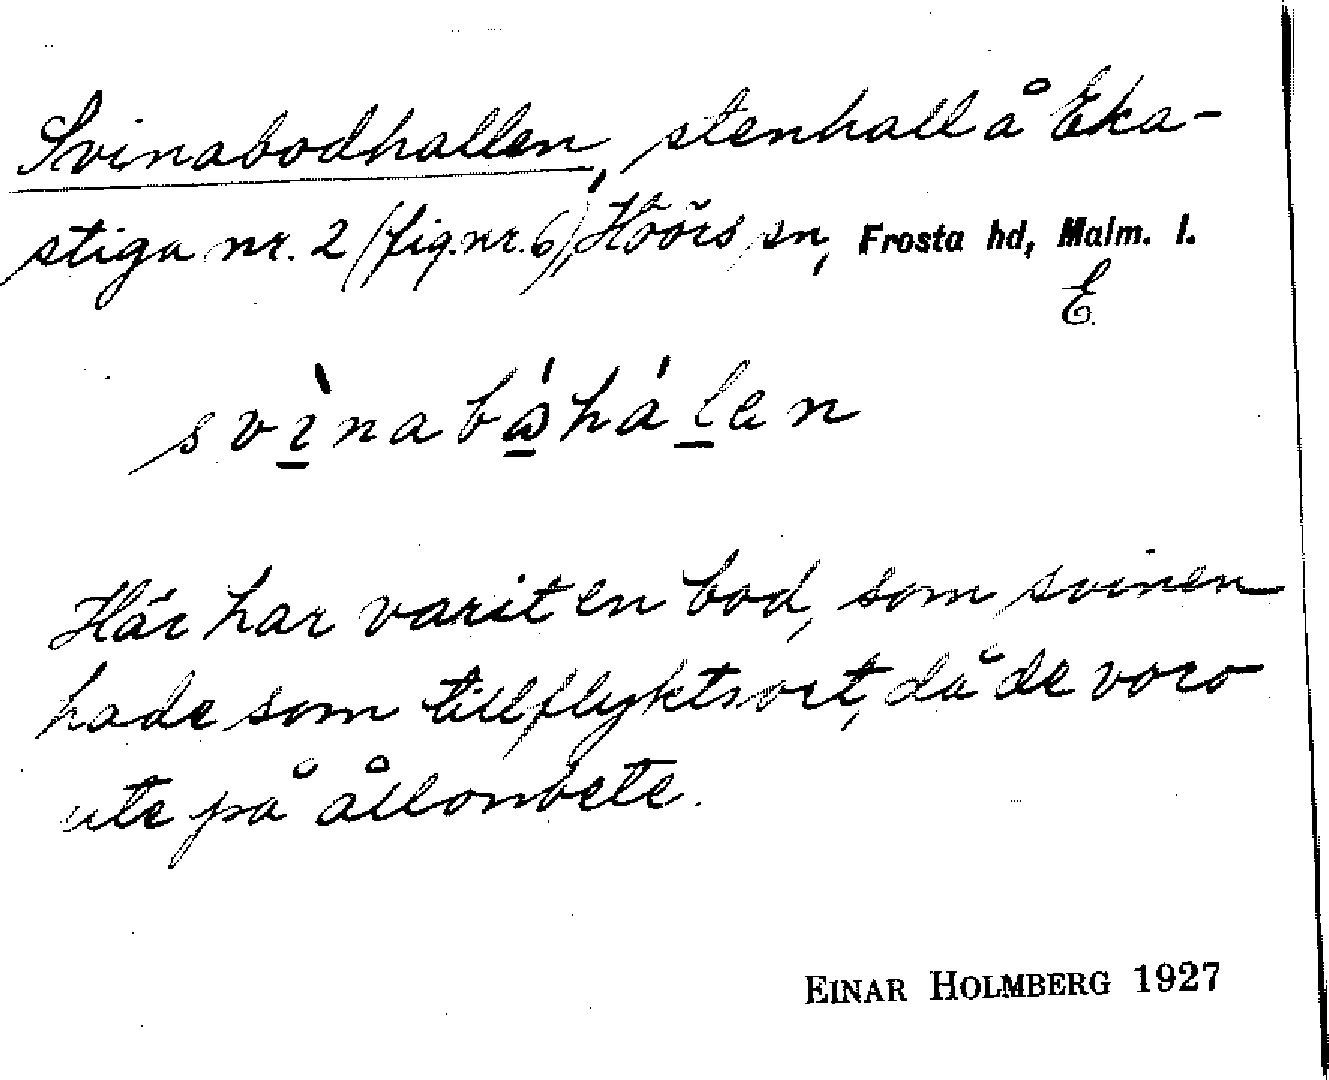 Svinabodhallen, stenhall å Eka-
stiga nr. 2 (fig.nr.6), Höörs sn, Frosta hd, Malm. l.
E
svìnabáhálen
Här har varit en bod, som svinen
hade som tillflyktsort, då de voro
ute på ållonbete.
EINAR HOLMBERG 1927